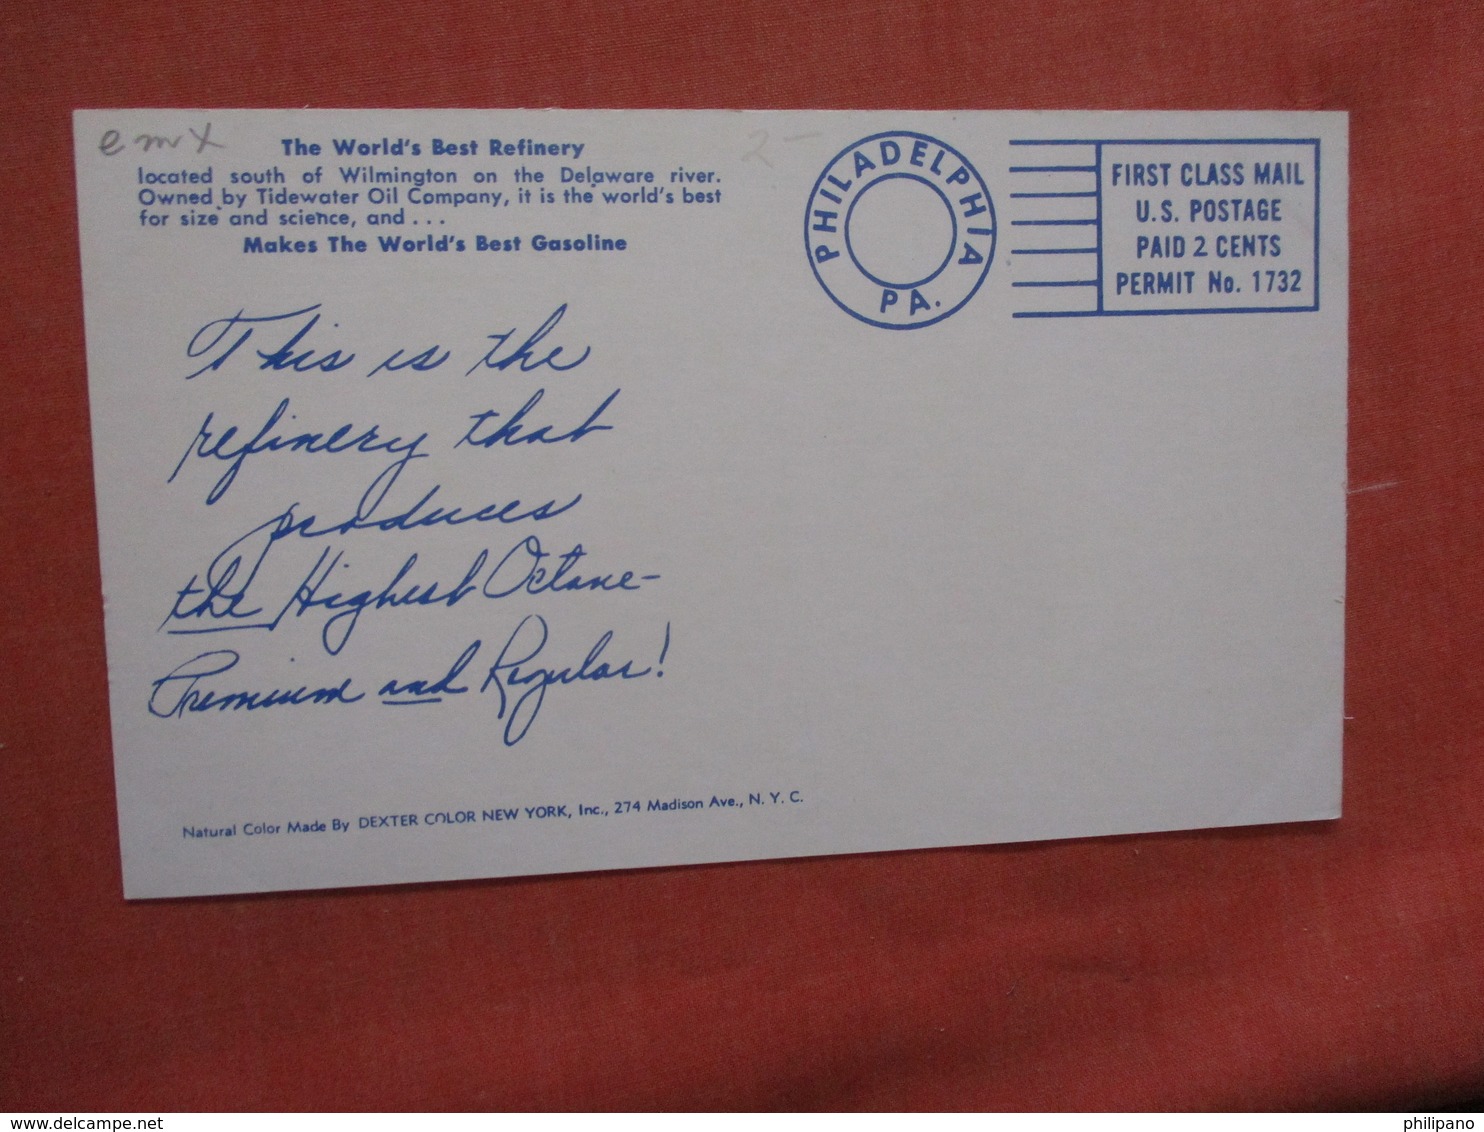 emx
2-
The World's Best Refinery
located south of Wilmington on the Delaware river.
Owned by Tidewater Oil Company, it is the world's best
for size and science, and . . .
Makes The World's Best Gasoline
PHILADELPHIA
PA.
FIRST CLASS MAIL
U.S. POSTAGE
PAID 2 CENTS
PERMIT No. 1732
This is the
refinery that
produces
the Highest Octane-
Premium and Regular!
Natural Color Made By DEXTER COLOR NEW YORK, Inc., 274 Madison Ave., N. Y. C.
www.delcampe.net
philipano